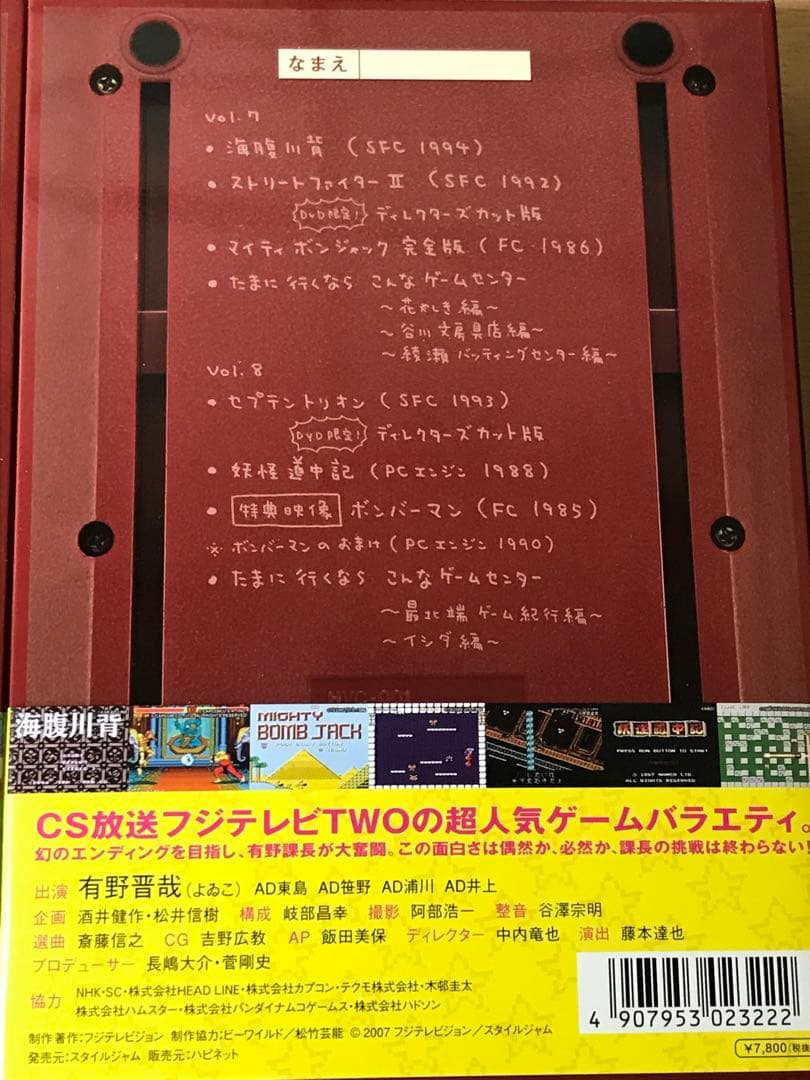 なまえ
vol.7
• 海腹川背 (SFC 1994)
• ストリートファイターⅡ (SFC 1992)
DVD限定! ディレクターズカット版
• マイティボンジャック 完全版 (FC 1986)
• たまに行くなら こんなゲームセンター
～花やしき編～
～谷川文房具店編～
～綾瀬バッティングセンター編～
vol.8
• セプテントリオン (SFC 1993)
DVD限定! ディレクターズカット版
• 妖怪道中記 (PCエンジン 1988)
• 特典映像 ボンバーマン (FC 1985)
※ボンバーマンのおまけ (PCエンジン 1990)
• たまに行くなら こんなゲームセンター
～最北端ゲーム紀行編～
～イシダ編～
HVC-001
海腹川背
MIGHTY
BOMB JACK
妖怪道中記
PRESS RUN BUTTON TO START
© 1987 NAMCO LTD.
ALL RIGHTS RESERVED
CS放送フジテレビTWOの超人気ゲームバラエティ。
幻のエンディングを目指し、有野課長が大奮闘。この面白さは偶然か、必然か、課長の挑戦は終わらない!
出演 有野晋哉(よゐこ) AD東島 AD笹野 AD浦川 AD井上
企画 酒井健作・松井信樹 構成 岐部昌幸 撮影 阿部浩一 整音 谷澤宗明
選曲 斎藤信之 CG 吉野広教 AP 飯田美保 ディレクター 中内竜也 演出 藤本達也
プロデューサー 長嶋大介・菅剛史
協力 NHK・SC・株式会社HEAD LINE・株式会社カプコン・テクモ株式会社・木邨圭太
株式会社ハムスター・株式会社バンダイナムコゲームス・株式会社ハドソン
制作著作:フジテレビジョン 制作協力:ビーワイルド/松竹芸能 © 2007 フジテレビジョン/スタイルジャム
発売元:スタイルジャム 販売元:ハピネット
4 907953 023222
¥7,800(税抜